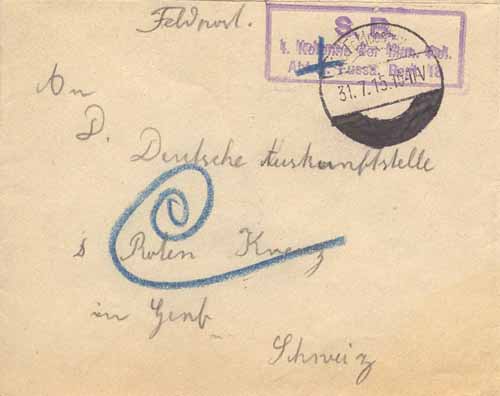 Feldpost.
S. B.
1. Kolonne der Mun. Kol.
Abt. Fussa. Batl. 18
31.7.15.
An
D. Deutsche Auskunftstelle
s Roten Kreuz
in Genf
Schweiz